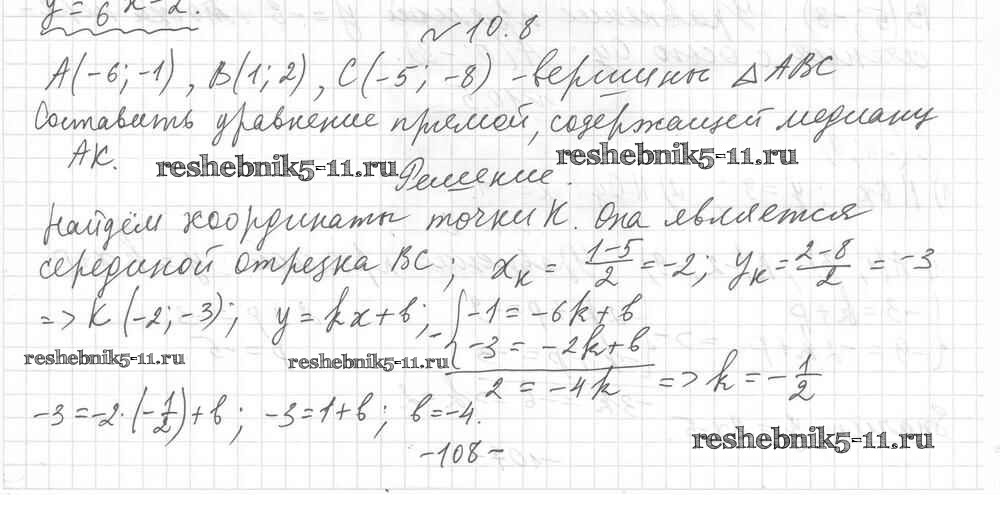 y = 6 x - 2.
№ 10.8
A(-6; -1), B(1; 2), C(-5; -8) - вершины △ABC
Составить уравнение прямой, содержащей медиану
AK.
reshebnik5-11.ru
reshebnik5-11.ru
Решение.
Найдём координаты точки K. Она является
серединой отрезка BC; x_K = (1-5)/2 = -2; y_K = (2-8)/2 = -3
=> K(-2; -3); y = kx + b; - { -1 = -6k + b
-3 = -2k + b
reshebnik5-11.ru
reshebnik5-11.ru
2 = -4k => k = -1/2
-3 = -2·(-1/2) + b; -3 = 1 + b; b = -4.
reshebnik5-11.ru
-108-